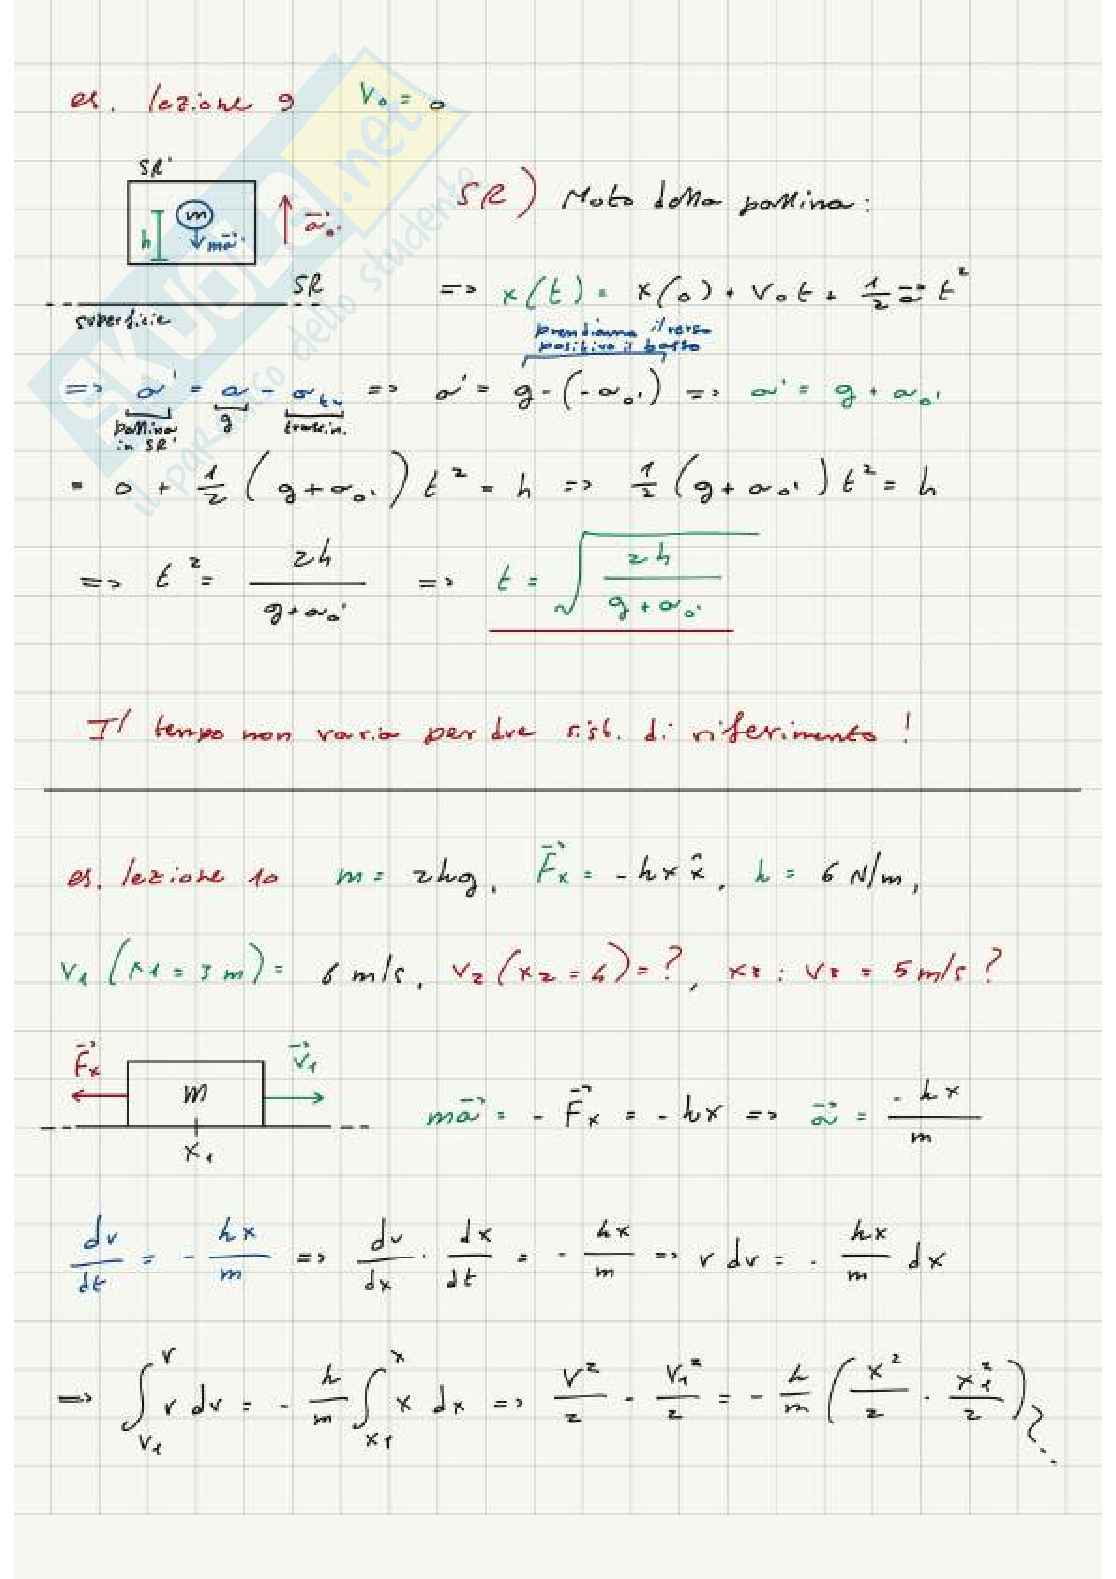 es. lezione 9 V₀ = 0
SR'
m
h
mā'
a⃗₀'
SR
superficie
SR) Moto della pallina:
=> x(t) = x(0) + V₀t + 1/2 a⃗ t²
prendiamo il verso
positivo il basso
=> a' = a - a_tr => a' = g - (-a₀') => a' = g + a₀'
pallina in SR' g trascin.
= 0 + 1/2 (g + a₀') t² = h => 1/2 (g + a₀') t² = h
=> t² = 2h / (g + a₀') => t = √(2h / (g + a₀'))
Il tempo non varia per due sist. di riferimento!
es. lezione 10 m = 2kg, F⃗ₓ = -kx x̂, k = 6 N/m,
V₁(x₁ = 3 m) = 6 m/s, V₂(x₂ = 4) = ?, x₃ : V₃ = 5 m/s ?
F⃗ₓ m v⃗₁
x₁
ma⃗ = - F⃗ₓ = - kx => a⃗ = - kx / m
dv/dt = - kx/m => dv/dx · dx/dt = - kx/m => v dv = - kx/m dx
=> ∫_{V₁}^{V} v dv = - k/m ∫_{x₁}^{x} x dx => V²/2 - V₁²/2 = - k/m (x²/2 - x₁²/2) ?...
skuola.net
il paradiso dello studente